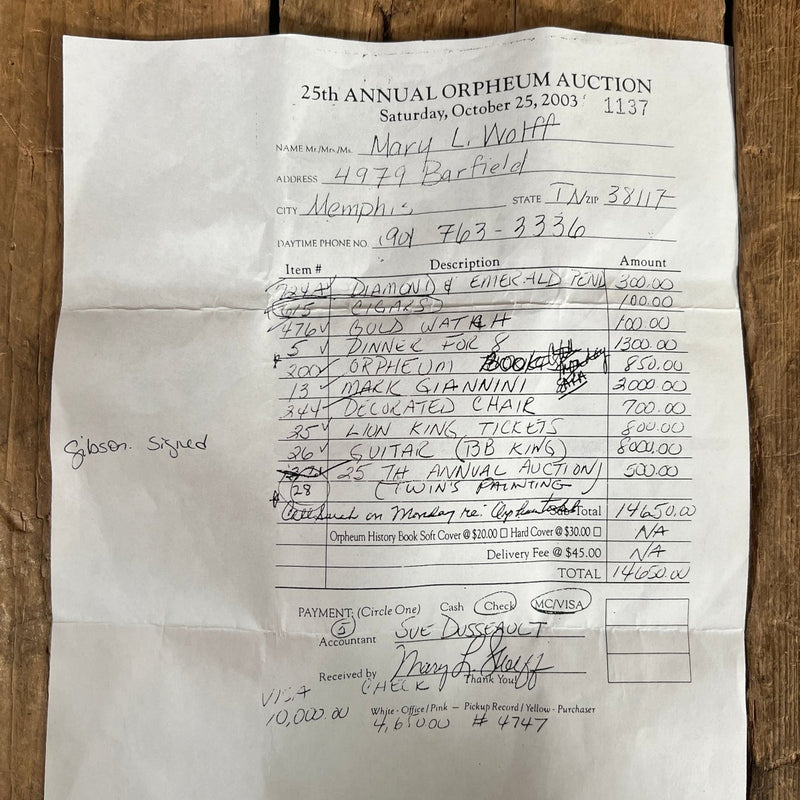 25th ANNUAL ORPHEUM AUCTION
Saturday, October 25, 2003 1137
NAME Mr./Mrs./Ms. Mary L. Wolff
ADDRESS 4979 Barfield
CITY Memphis STATE TN ZIP 38117
DAYTIME PHONE NO. (901 763-3336
Item # Description Amount
224A DIAMOND & EMERALD PEND 300.00
615 CIGARS 100.00
476 GOLD WATCH 100.00
5 DINNER FOR 8 1300.00
200 ORPHEUM 850.00
13 MARK GIANNINI 2000.00
344 DECORATED CHAIR 700.00
25 LION KING TICKETS 800.00
Gibson. Signed
26 GUITAR (BB KING) 8000.00
25 TH ANNUAL AUCTION 500.00
28 (TWIN'S PAINTING)
on Monday re: Total 14650.00
Orpheum History Book Soft Cover @ $20.00 □ Hard Cover @ $30.00 □ NA
Delivery Fee @ $45.00 NA
TOTAL 14650.00
PAYMENT: (Circle One) Cash Check MC/VISA
5
Accountant SUE DUSSEAULT
Received by Mary L. Wolff
Thank You!
VISA CHECK
10,000.00 White - Office / Pink — Pickup Record / Yellow - Purchaser
4,650.00 # 4747